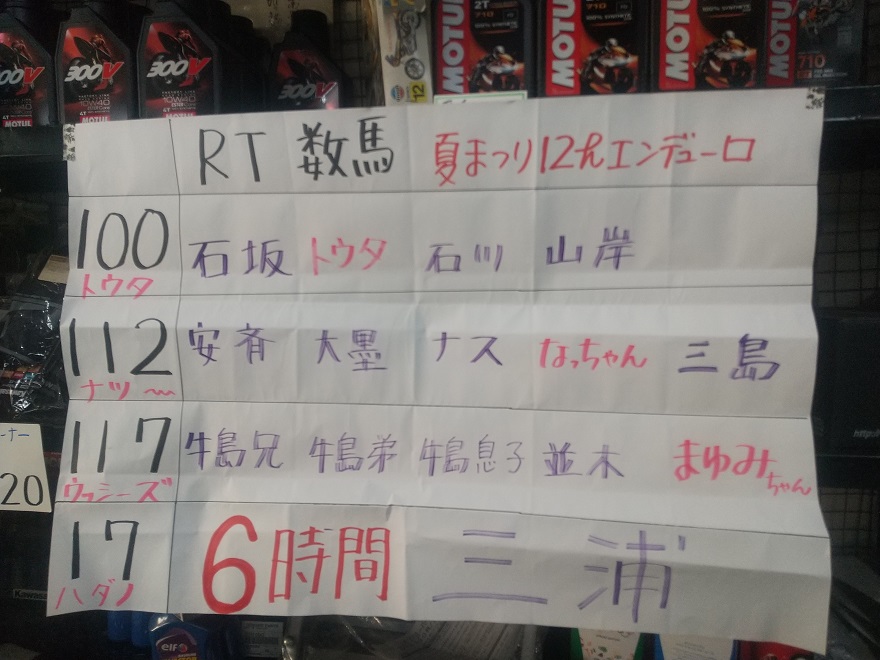 300V
10W40
4T MOTUL
300V
10W40
4T MOTUL
300V
12
MOTUL
2T
710
MOTUL
710
100% SYNTHETIC
MOTUL
MOTUL
710
RT 数馬 夏まつり12hエンデューロ
100 石坂 トウタ 石川 山岸
トウタ
112 安斉 大墨 ナス なっちゃん 三島
ナツ〜
117 牛島兄 牛島弟 牛島息子 並木 まゆみちゃん
ウッシーズ
17 6時間 三浦
ハダノ
ーナー
20
http://
elf